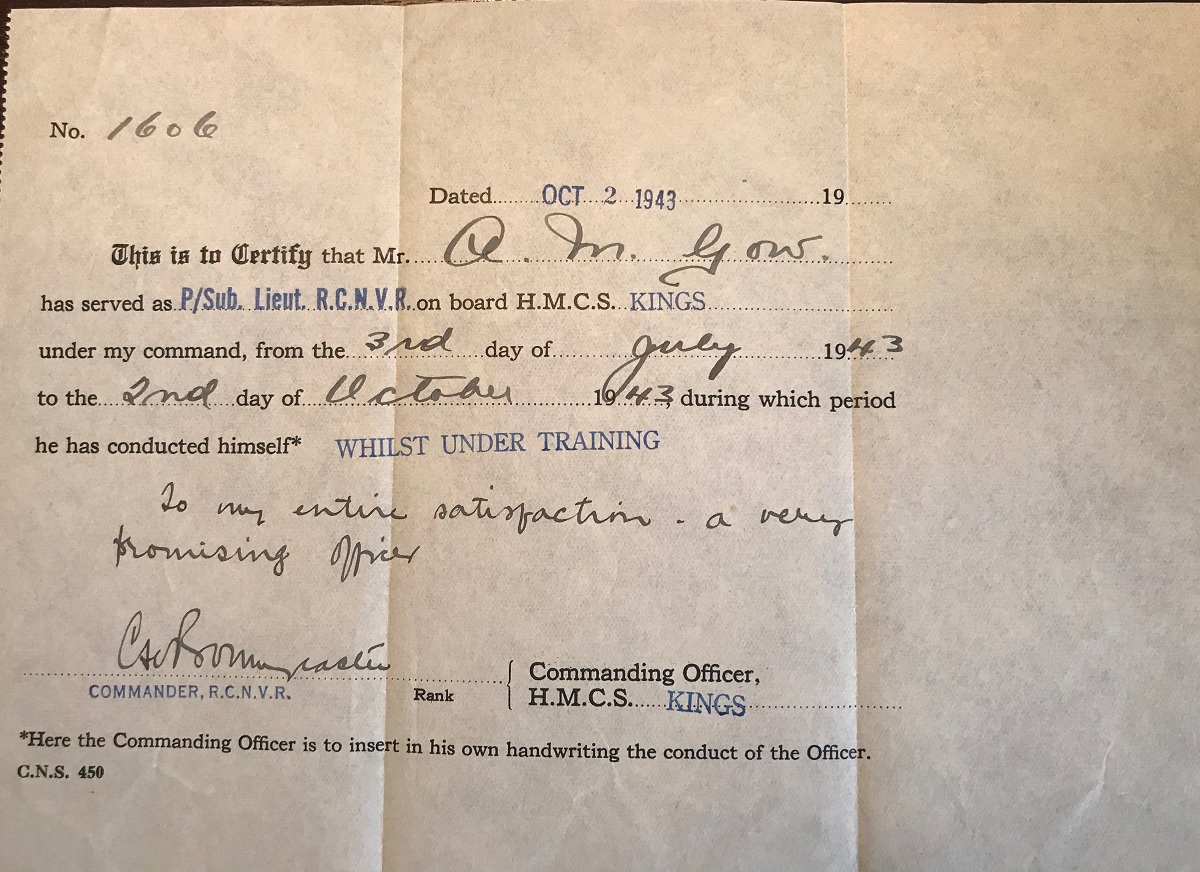 No. 1606
Dated OCT 2 1943 19
This is to Certify that Mr. A. M. Gow.
has served as P/Sub. Lieut. R.C.N.V.R. on board H.M.C.S. KINGS
under my command, from the 3rd day of July 1943
to the 2nd day of October 1943, during which period
he has conducted himself* WHILST UNDER TRAINING
To my entire satisfaction - a very
promising officer
COMMANDER, R.C.N.V.R. Rank
Commanding Officer,
H.M.C.S. KINGS
*Here the Commanding Officer is to insert in his own handwriting the conduct of the Officer.
C.N.S. 450